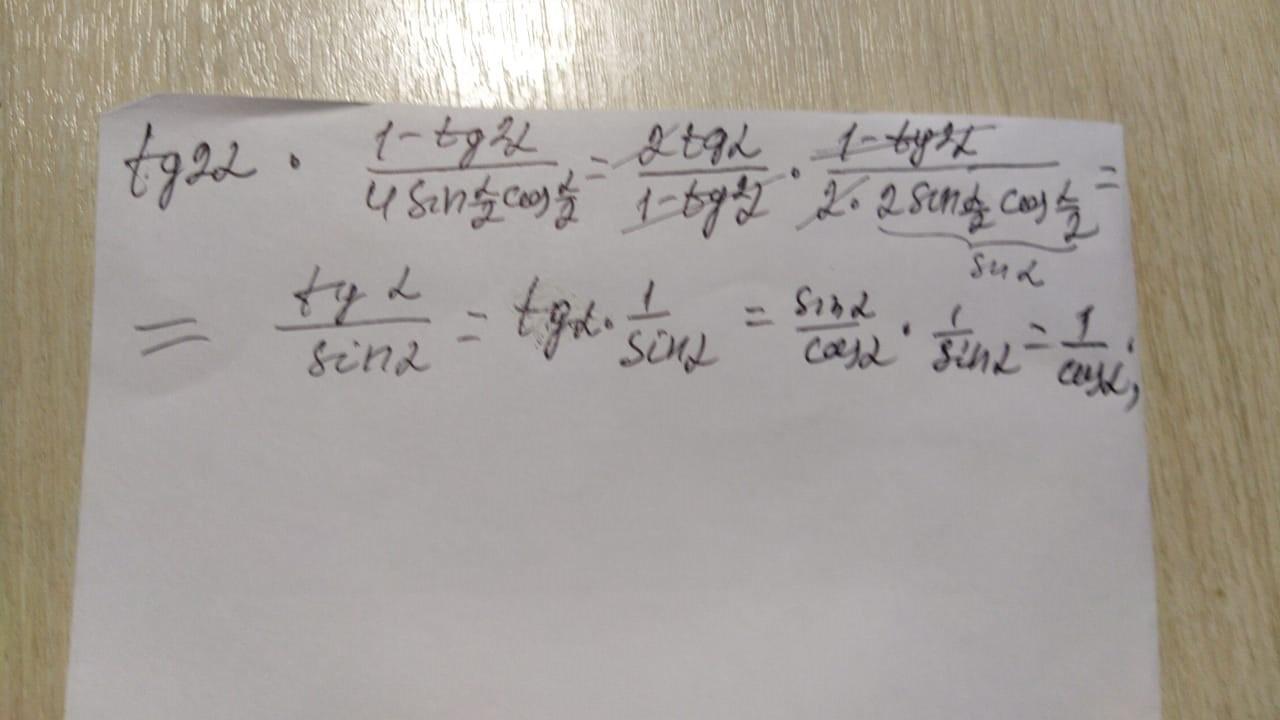 tg2α · (1-tg²α)/(4 sin α/2 cos α/2) = (2tgα)/(1-tg²α) · (1-tg²α)/(2·2sin α/2 cos α/2) =
sinα
= tgα/sinα = tgα · 1/sinα = sinα/cosα · 1/sinα = 1/cosα;